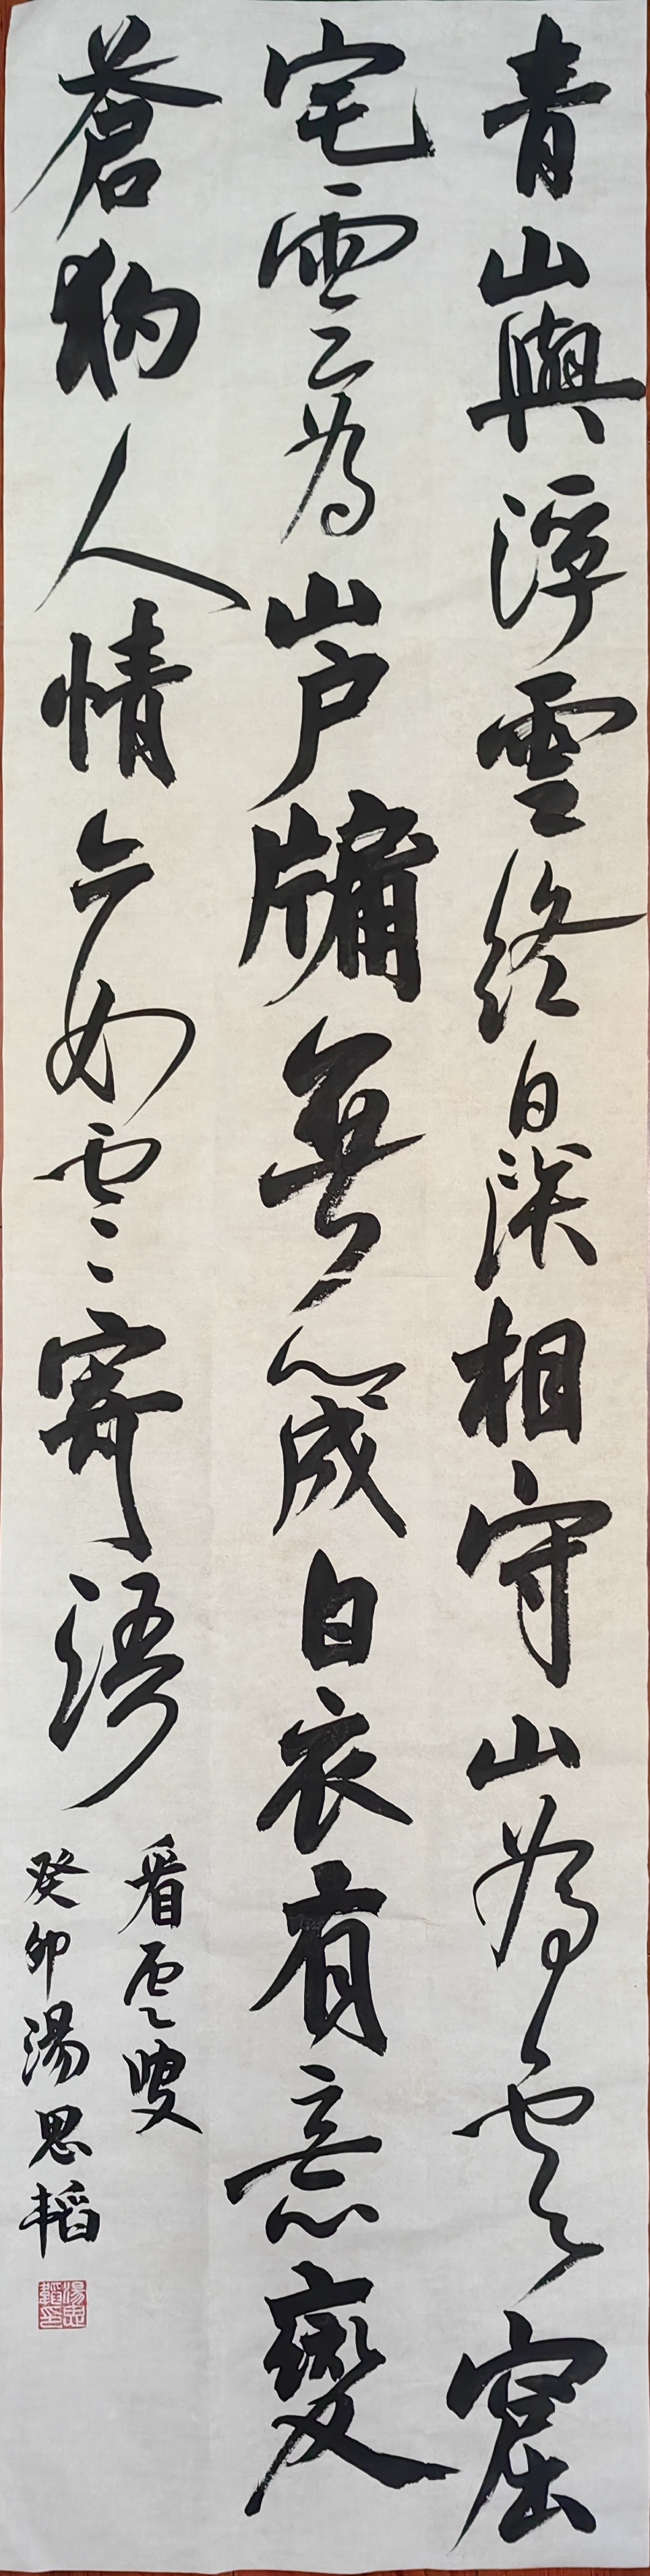 青山與浮雲終日深相守山為雲窟
宅雲為山戶牖無心成白衣有意變
蒼狗人情亦如雲雲寄語
看雲叟
癸卯湯思韜